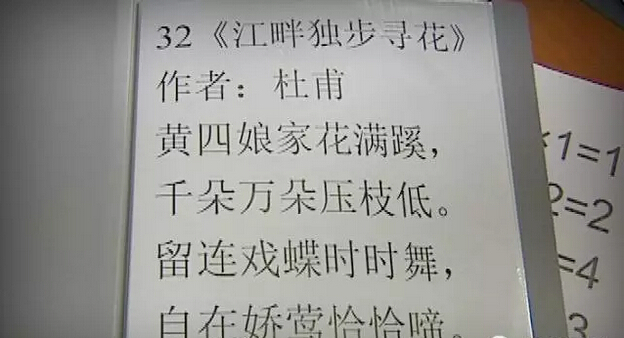 32《江畔独步寻花》
作者：杜甫
黄四娘家花满蹊，
千朵万朵压枝低。
留连戏蝶时时舞，
自在娇莺恰恰啼。
1=1
2=2
=4
3